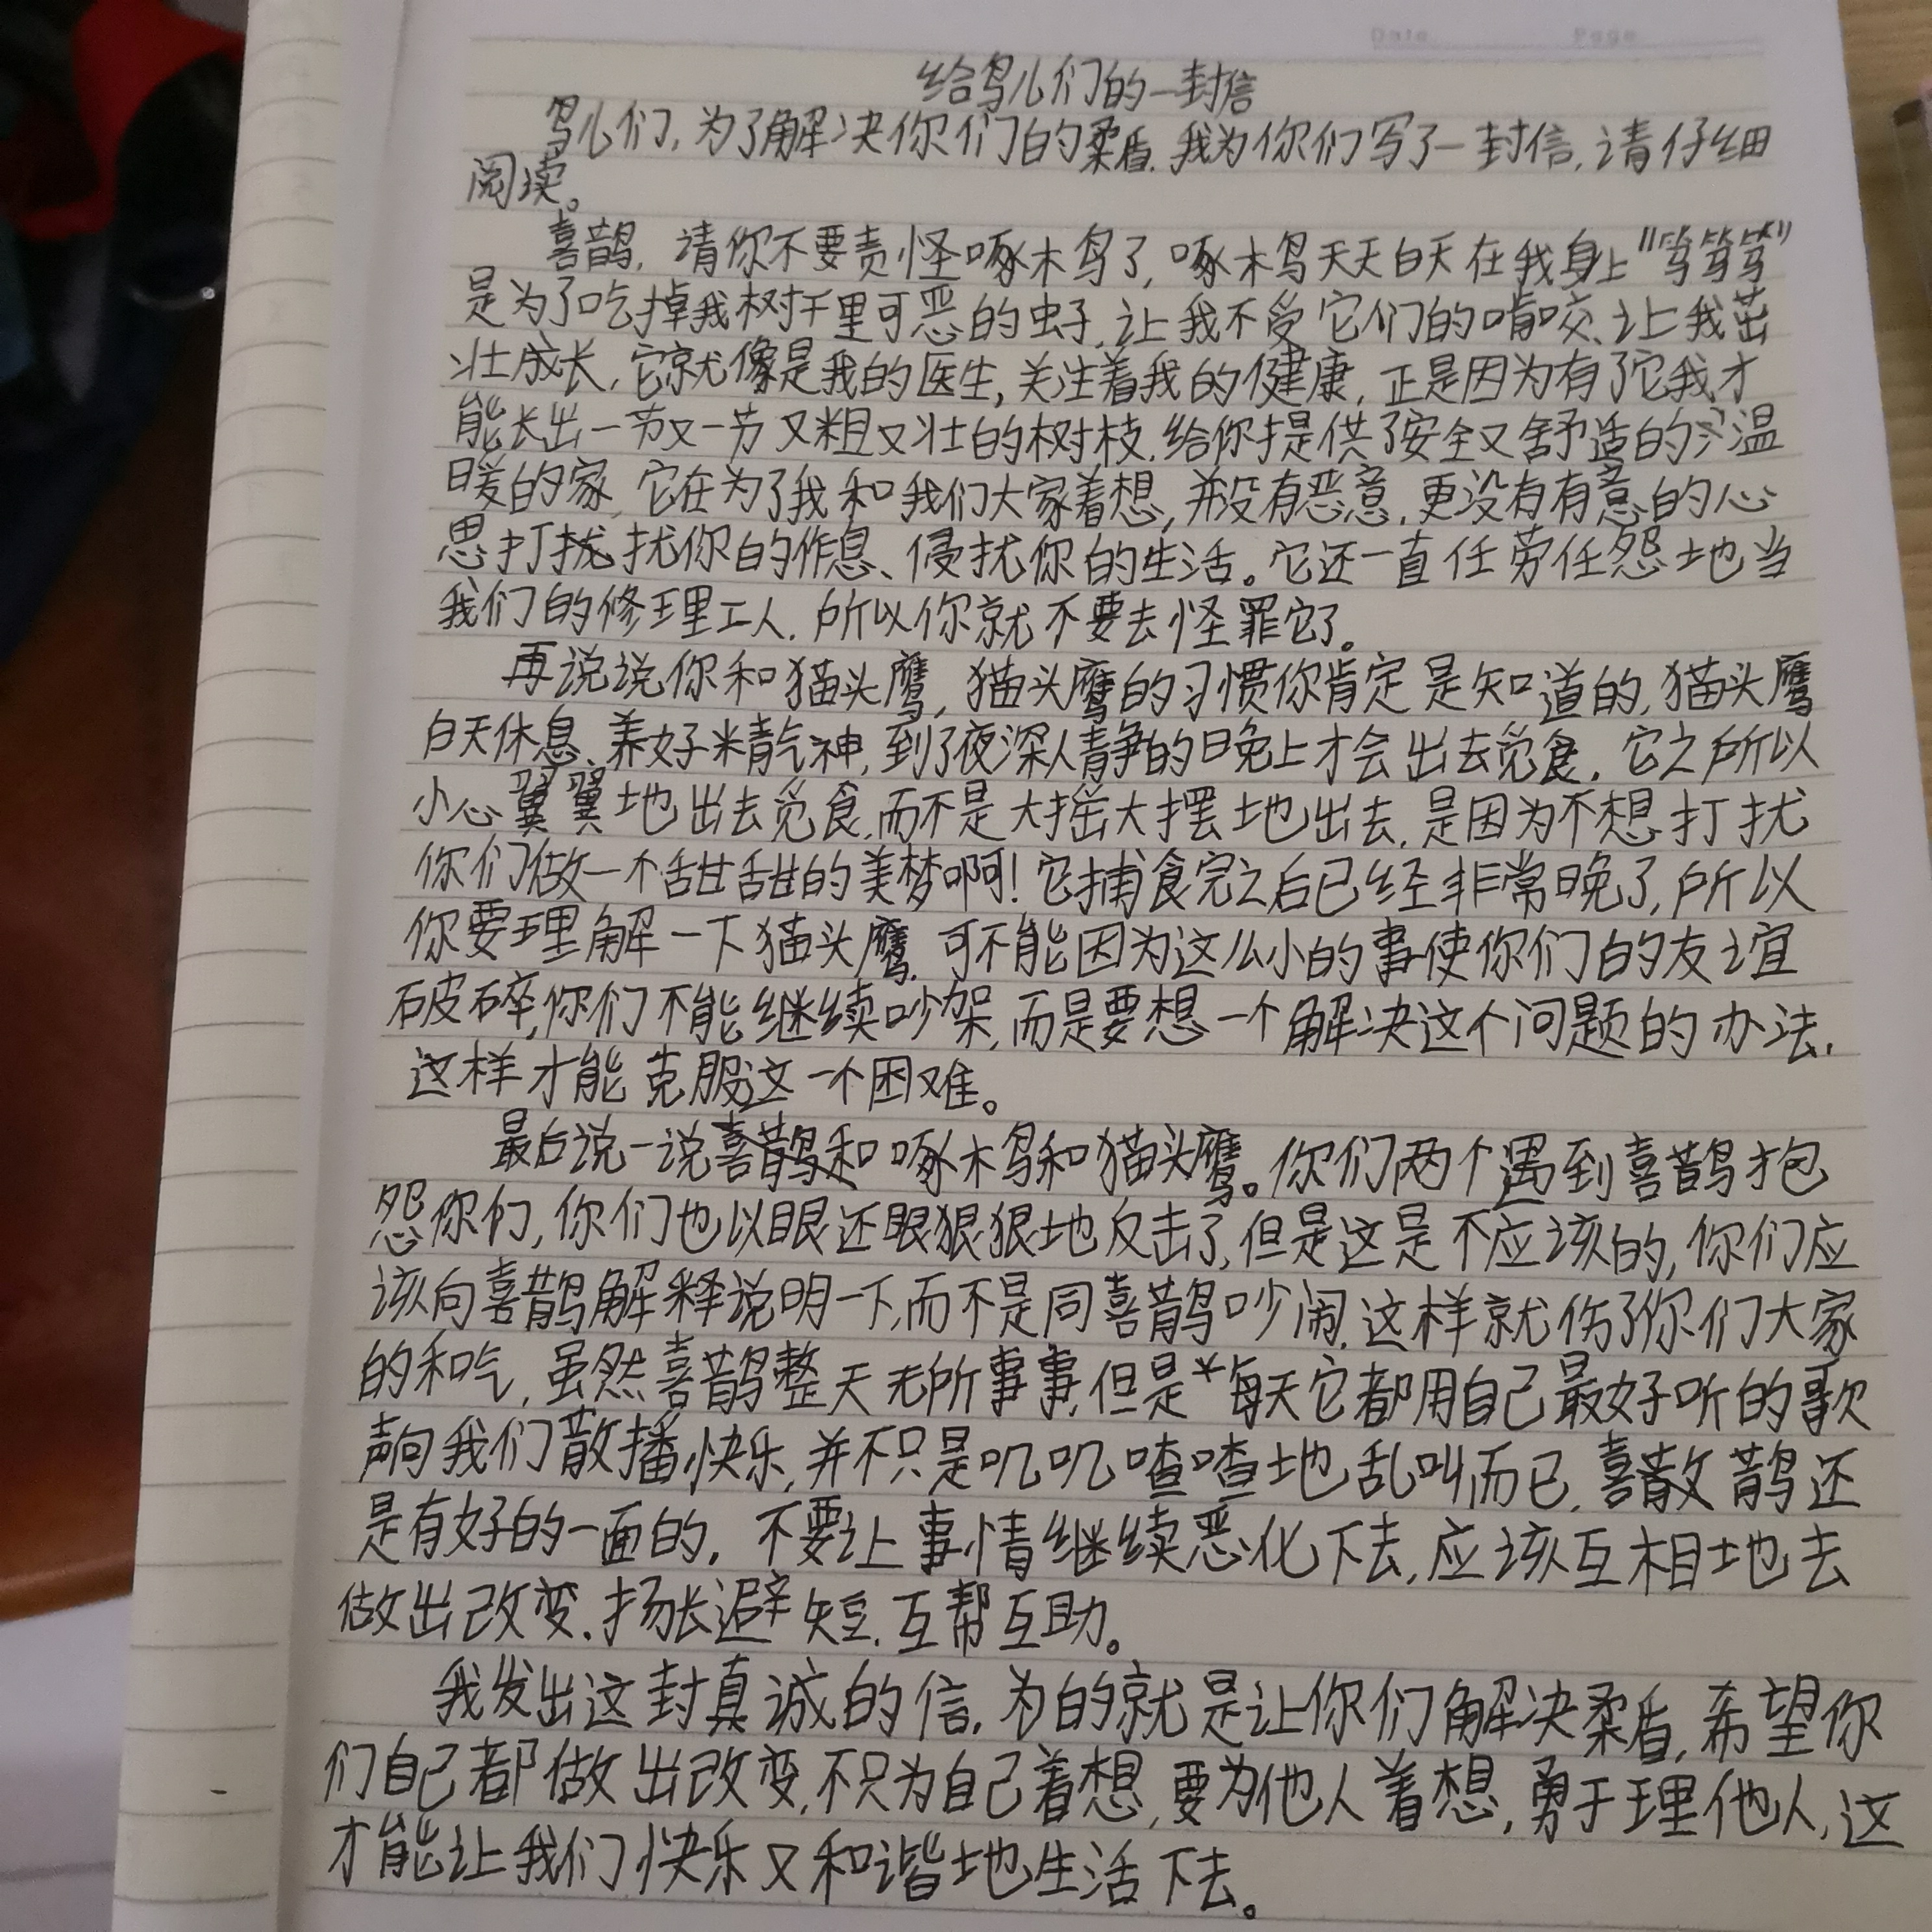 Date Page
给鸟儿们的一封信
鸟儿们,为了解决你们的柔盾.我为你们写了一封信,请仔细
阅读。
喜鹊,请你不要责怪啄木鸟了,啄木鸟天天白天在我身上“笃笃笃”
是为了吃掉我树干里可恶的虫子,让我不受它们的啃咬、让我茁
壮成长,它就像是我的医生,关注着我的健康,正是因为有了它我才
能长出一节又一节又粗又壮的树枝.给你提供了安全又舒适的温
暖的家,它在为了我和我们大家着想,并没有恶意,更没有有意的心
思打扰扰你的作息、侵扰你的生活。它还一直任劳任怨地当
我们的修理工人.所以你就不要去怪罪它了。
再说说你和猫头鹰,猫头鹰的习惯你肯定是知道的,猫头鹰
白天休息、养好精气神,到了夜深人静的晚上才会出去觅食.它之所以
小心翼翼地出去觅食,而不是大摇大摆地出去,是因为不想打扰
你们做一个甜甜的美梦啊!它捕食完之后已经非常晚了,所以
你要理解一下猫头鹰.可不能因为这么小的事使你们的友谊
破碎,你们不能继续吵架,而是要想一个解决这个问题的办法,
这样才能克服这一个困难。
最后说一说喜鹊和啄木鸟和猫头鹰。你们两个遇到喜鹊抱
怨你们,你们也以眼还眼狠狠地反击了,但是这是不应该的,你们应
该向喜鹊解释说明一下,而不是同喜鹊吵闹.这样就伤了你们大家
的和气,虽然喜鹊整天无所事事,但是每天它都用自己最好听的歌
声向我们散播快乐,并不只是叽叽喳喳地乱叫而已.喜鹊还
是有好的一面的,不要让事情继续恶化下去,应该互相地去
做出改变.扬长避短.互帮互助。
我发出这封真诚的信,为的就是让你们解决柔盾,希望你
们自己都做出改变,不只为自己着想,要为他人着想,勇于理他人,这
才能让我们快乐又和谐地生活下去。